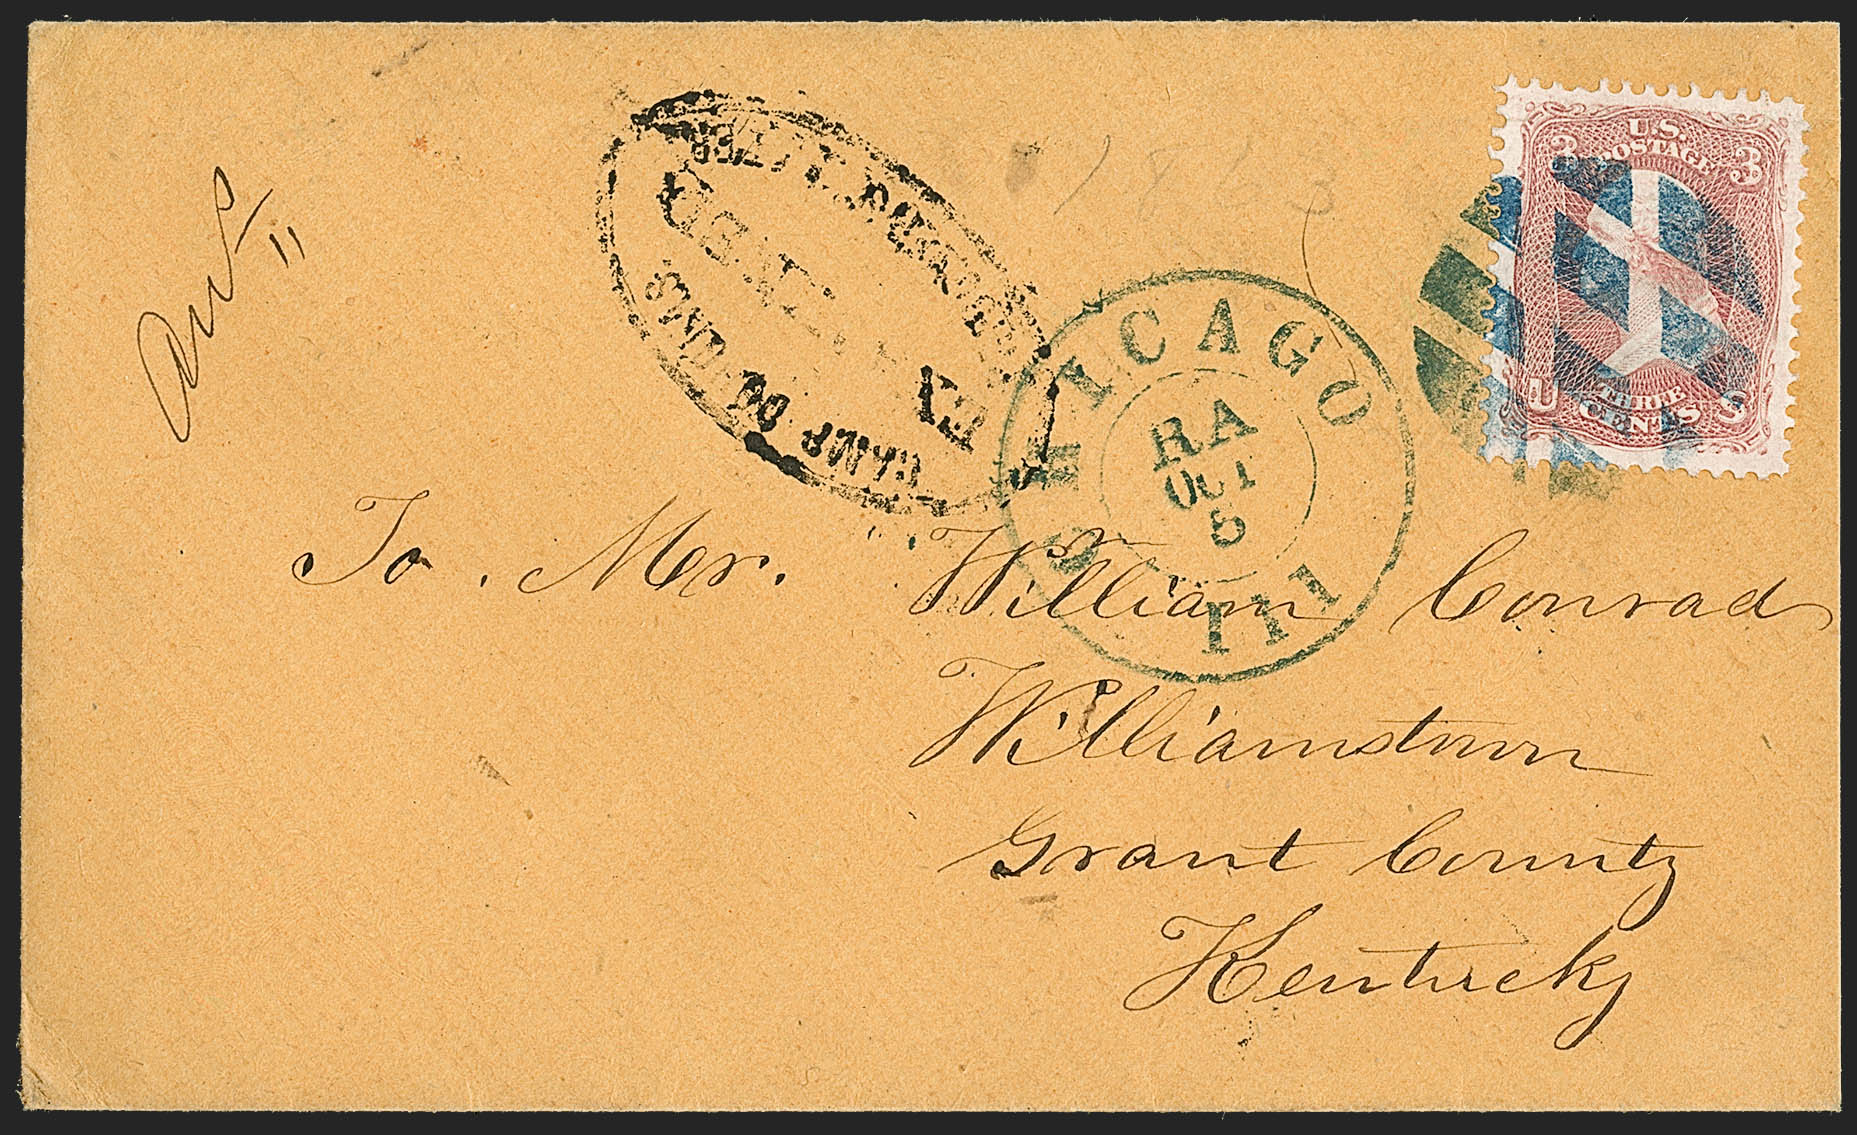 U.S.
POSTAGE
3 3
CHICAGO
RA
OCT
5
Ill
CAMP DOUGLAS
To . Mr. William Conrad
Williamstown
Grant County
Kentucky
THREE
CENTS
U
11